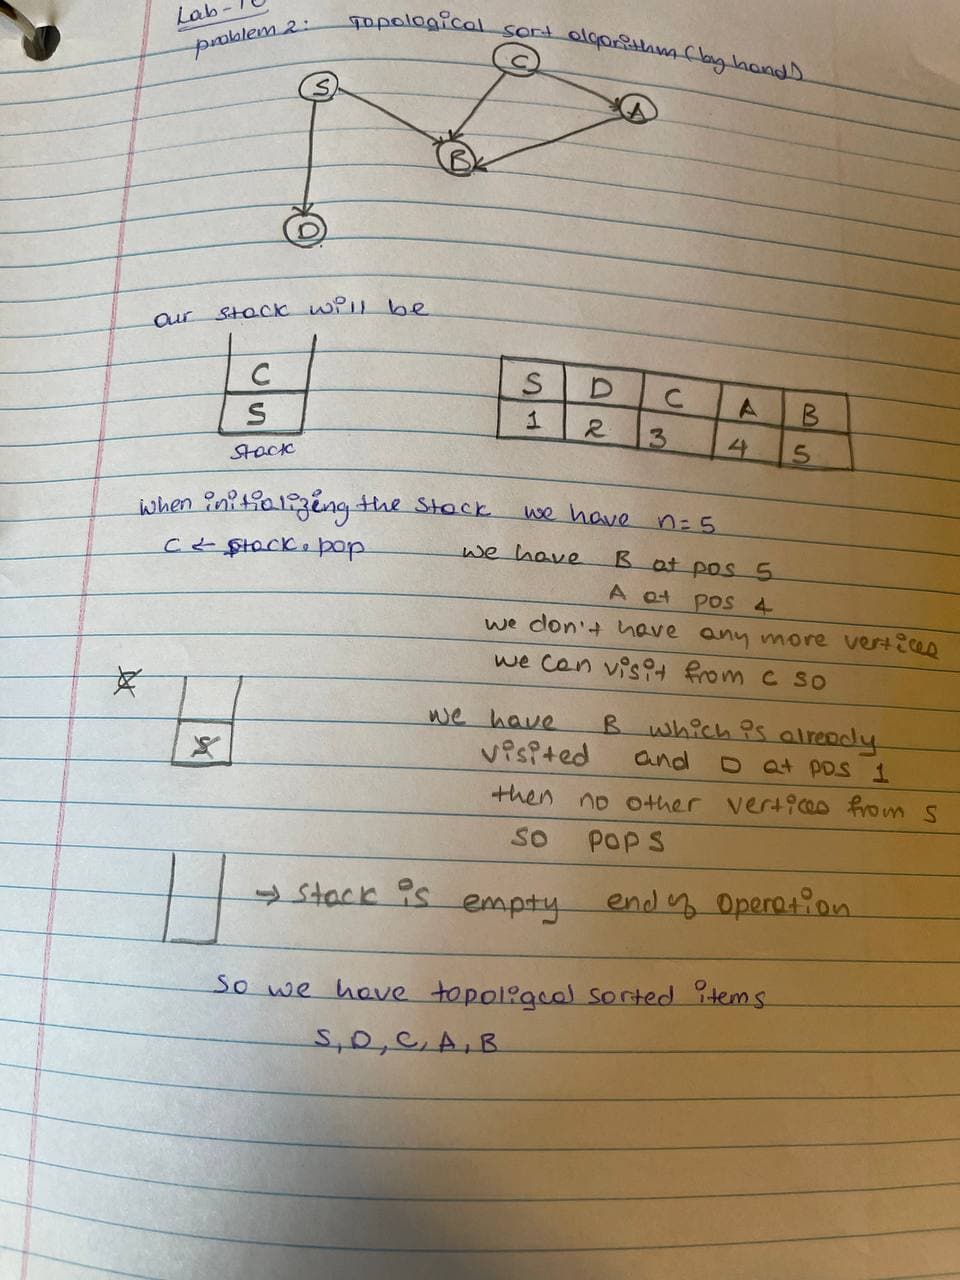 Lab-10
problem 2: Topological sort algorithm (by hand)
C
S
A
B
D
our stack will be
C
S
stack
S D C A B
1 2 3 4 5
when initializing the stack we have n=5
C ← stack.pop
we have B at pos 5
A at pos 4
we don't have any more vertices
we can visit from C so
S
we have B which is already
visited and D at pos 1
then no other vertices from S
so pop S
→ stack is empty end of operation
so we have topoligcal sorted items
S, D, C, A, B